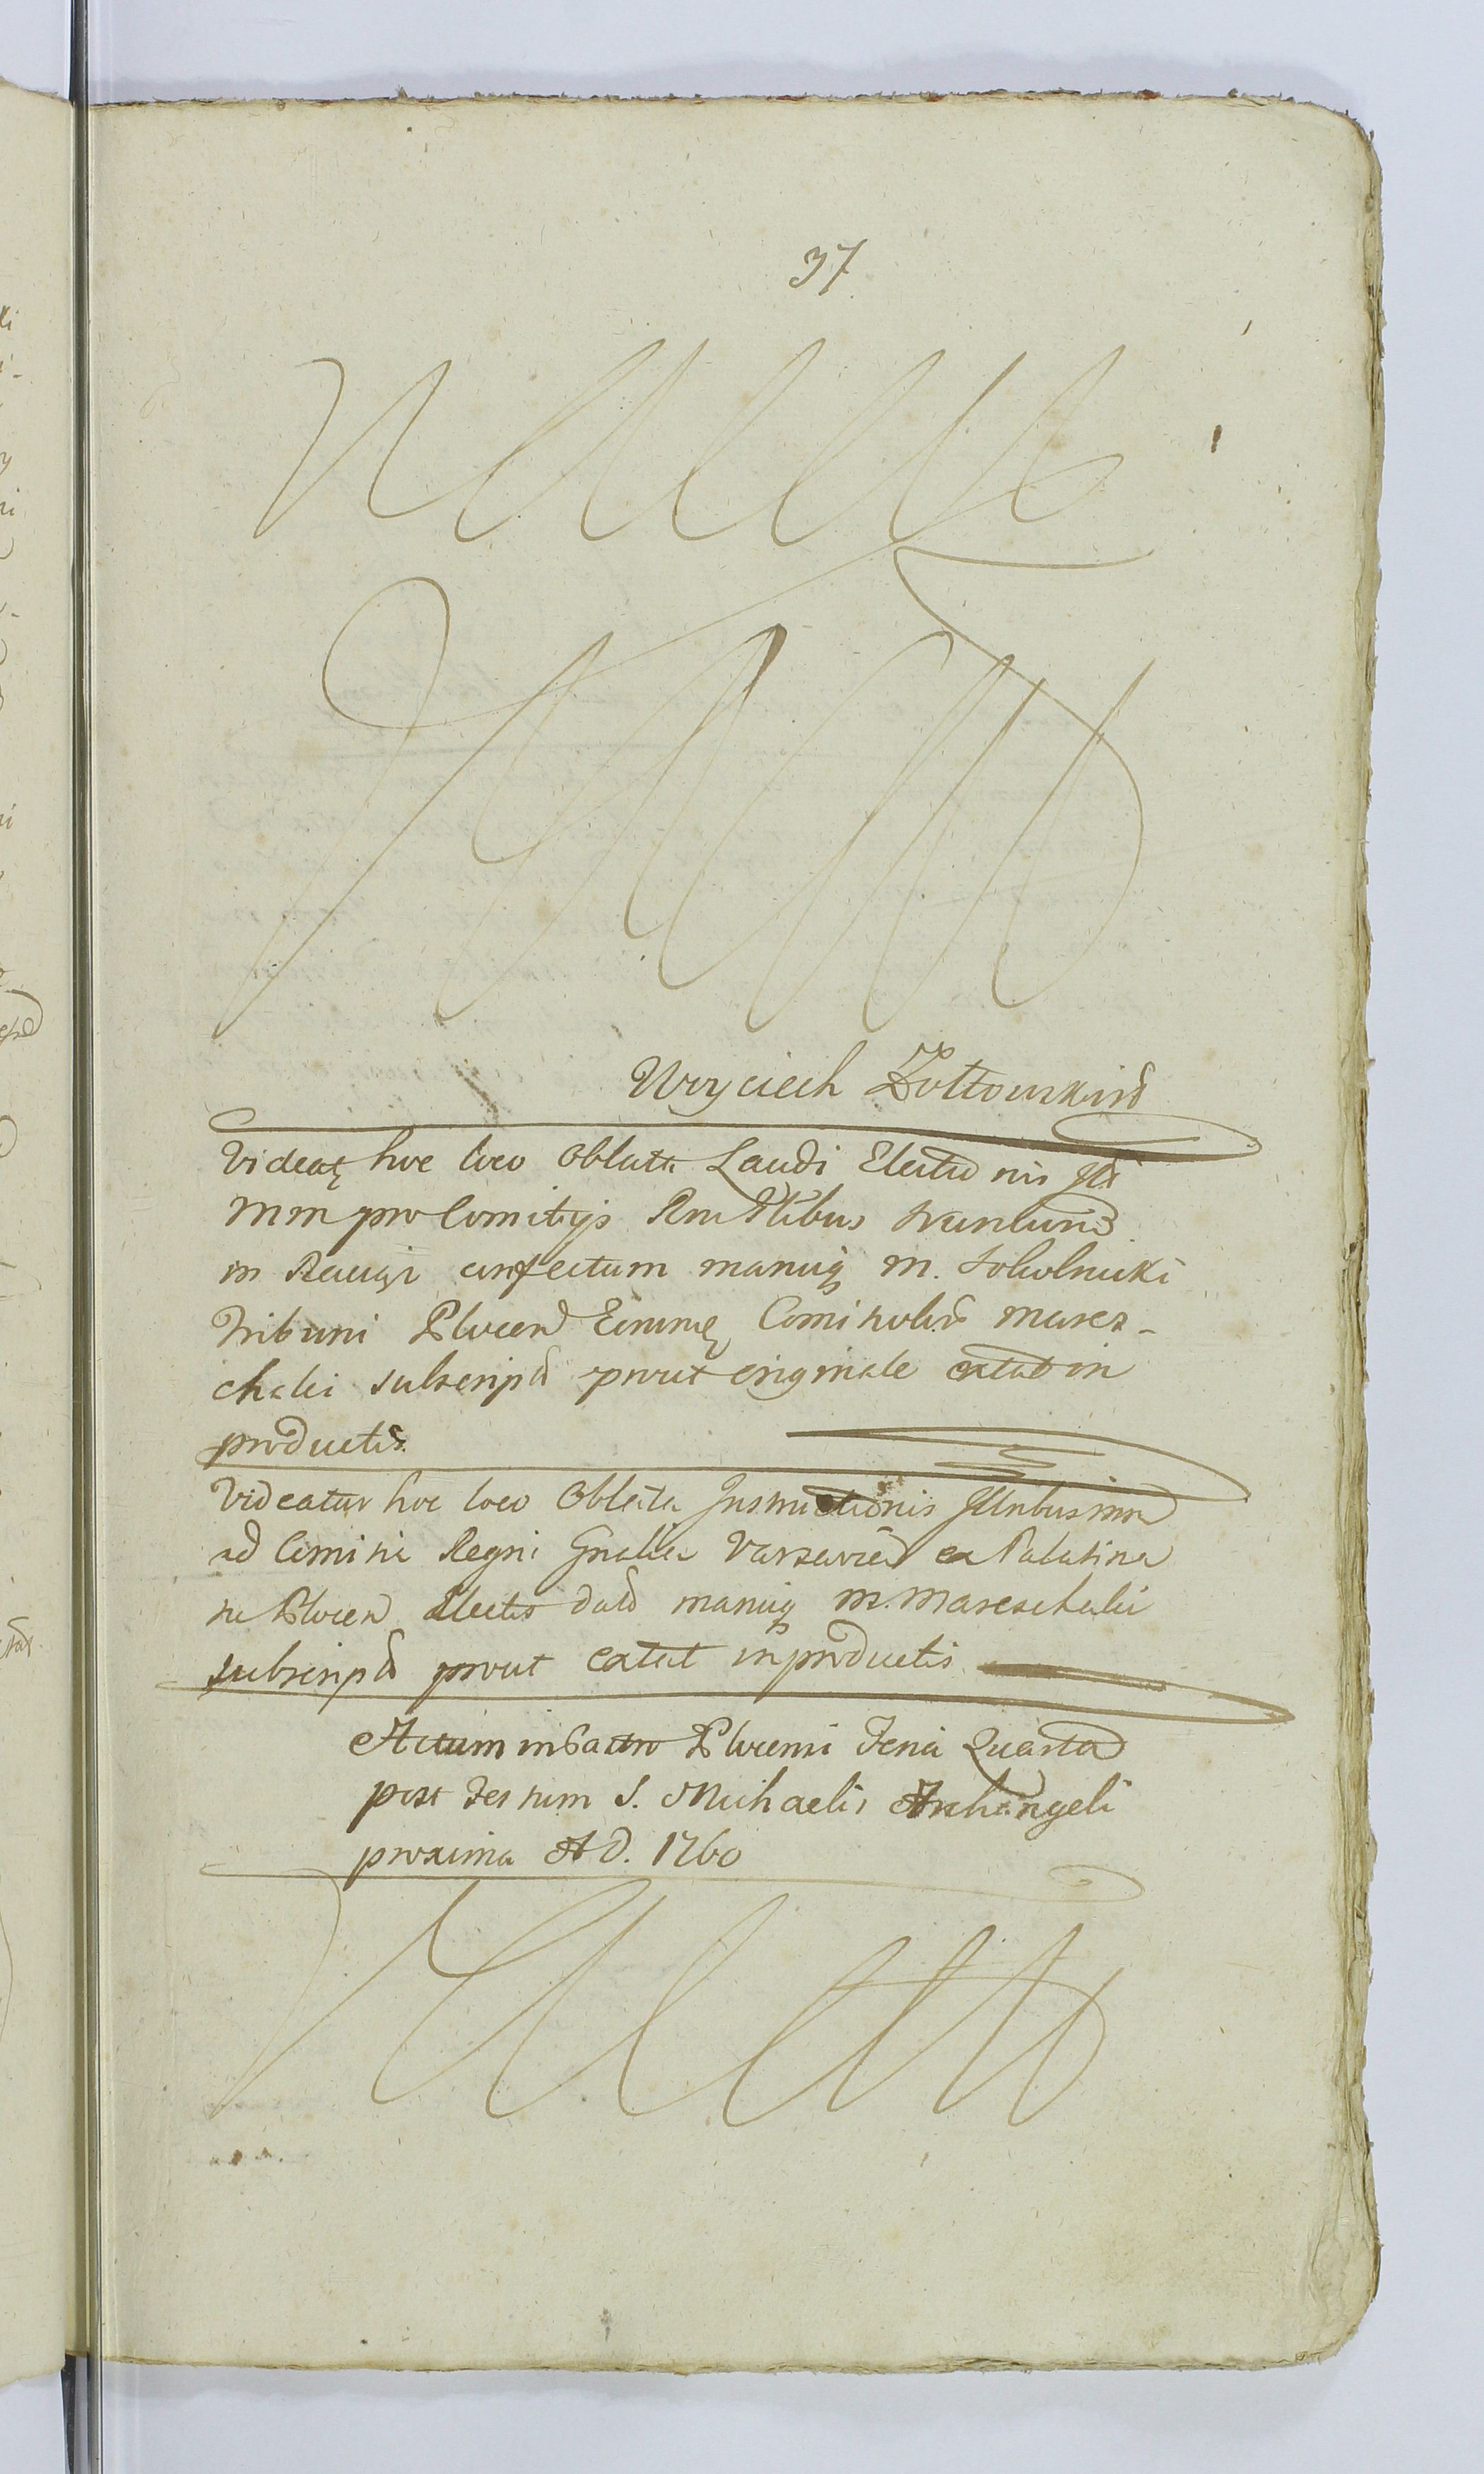 37
Woyciech Zołtowski
Videatę hoc loco Oblata Laudi Electio nis
mm pro Comitijs
in confectum manuq M. Sokolnicki
Tribuni Plocen Comitialis Maresz-
chalci subscript prout originale extat in
productis
Videatur hoc loco Oblata Instructionis
ad Comitia Regni Gnalia Varsavien ex Palatina
tu Plocen Electis dat manuq M. Mareschalci
subscript prout extat in productis
Actum in Castro Plocensi Feria Quarta
post Festum S. Michaelis Archangeli
proxima A D. 1760